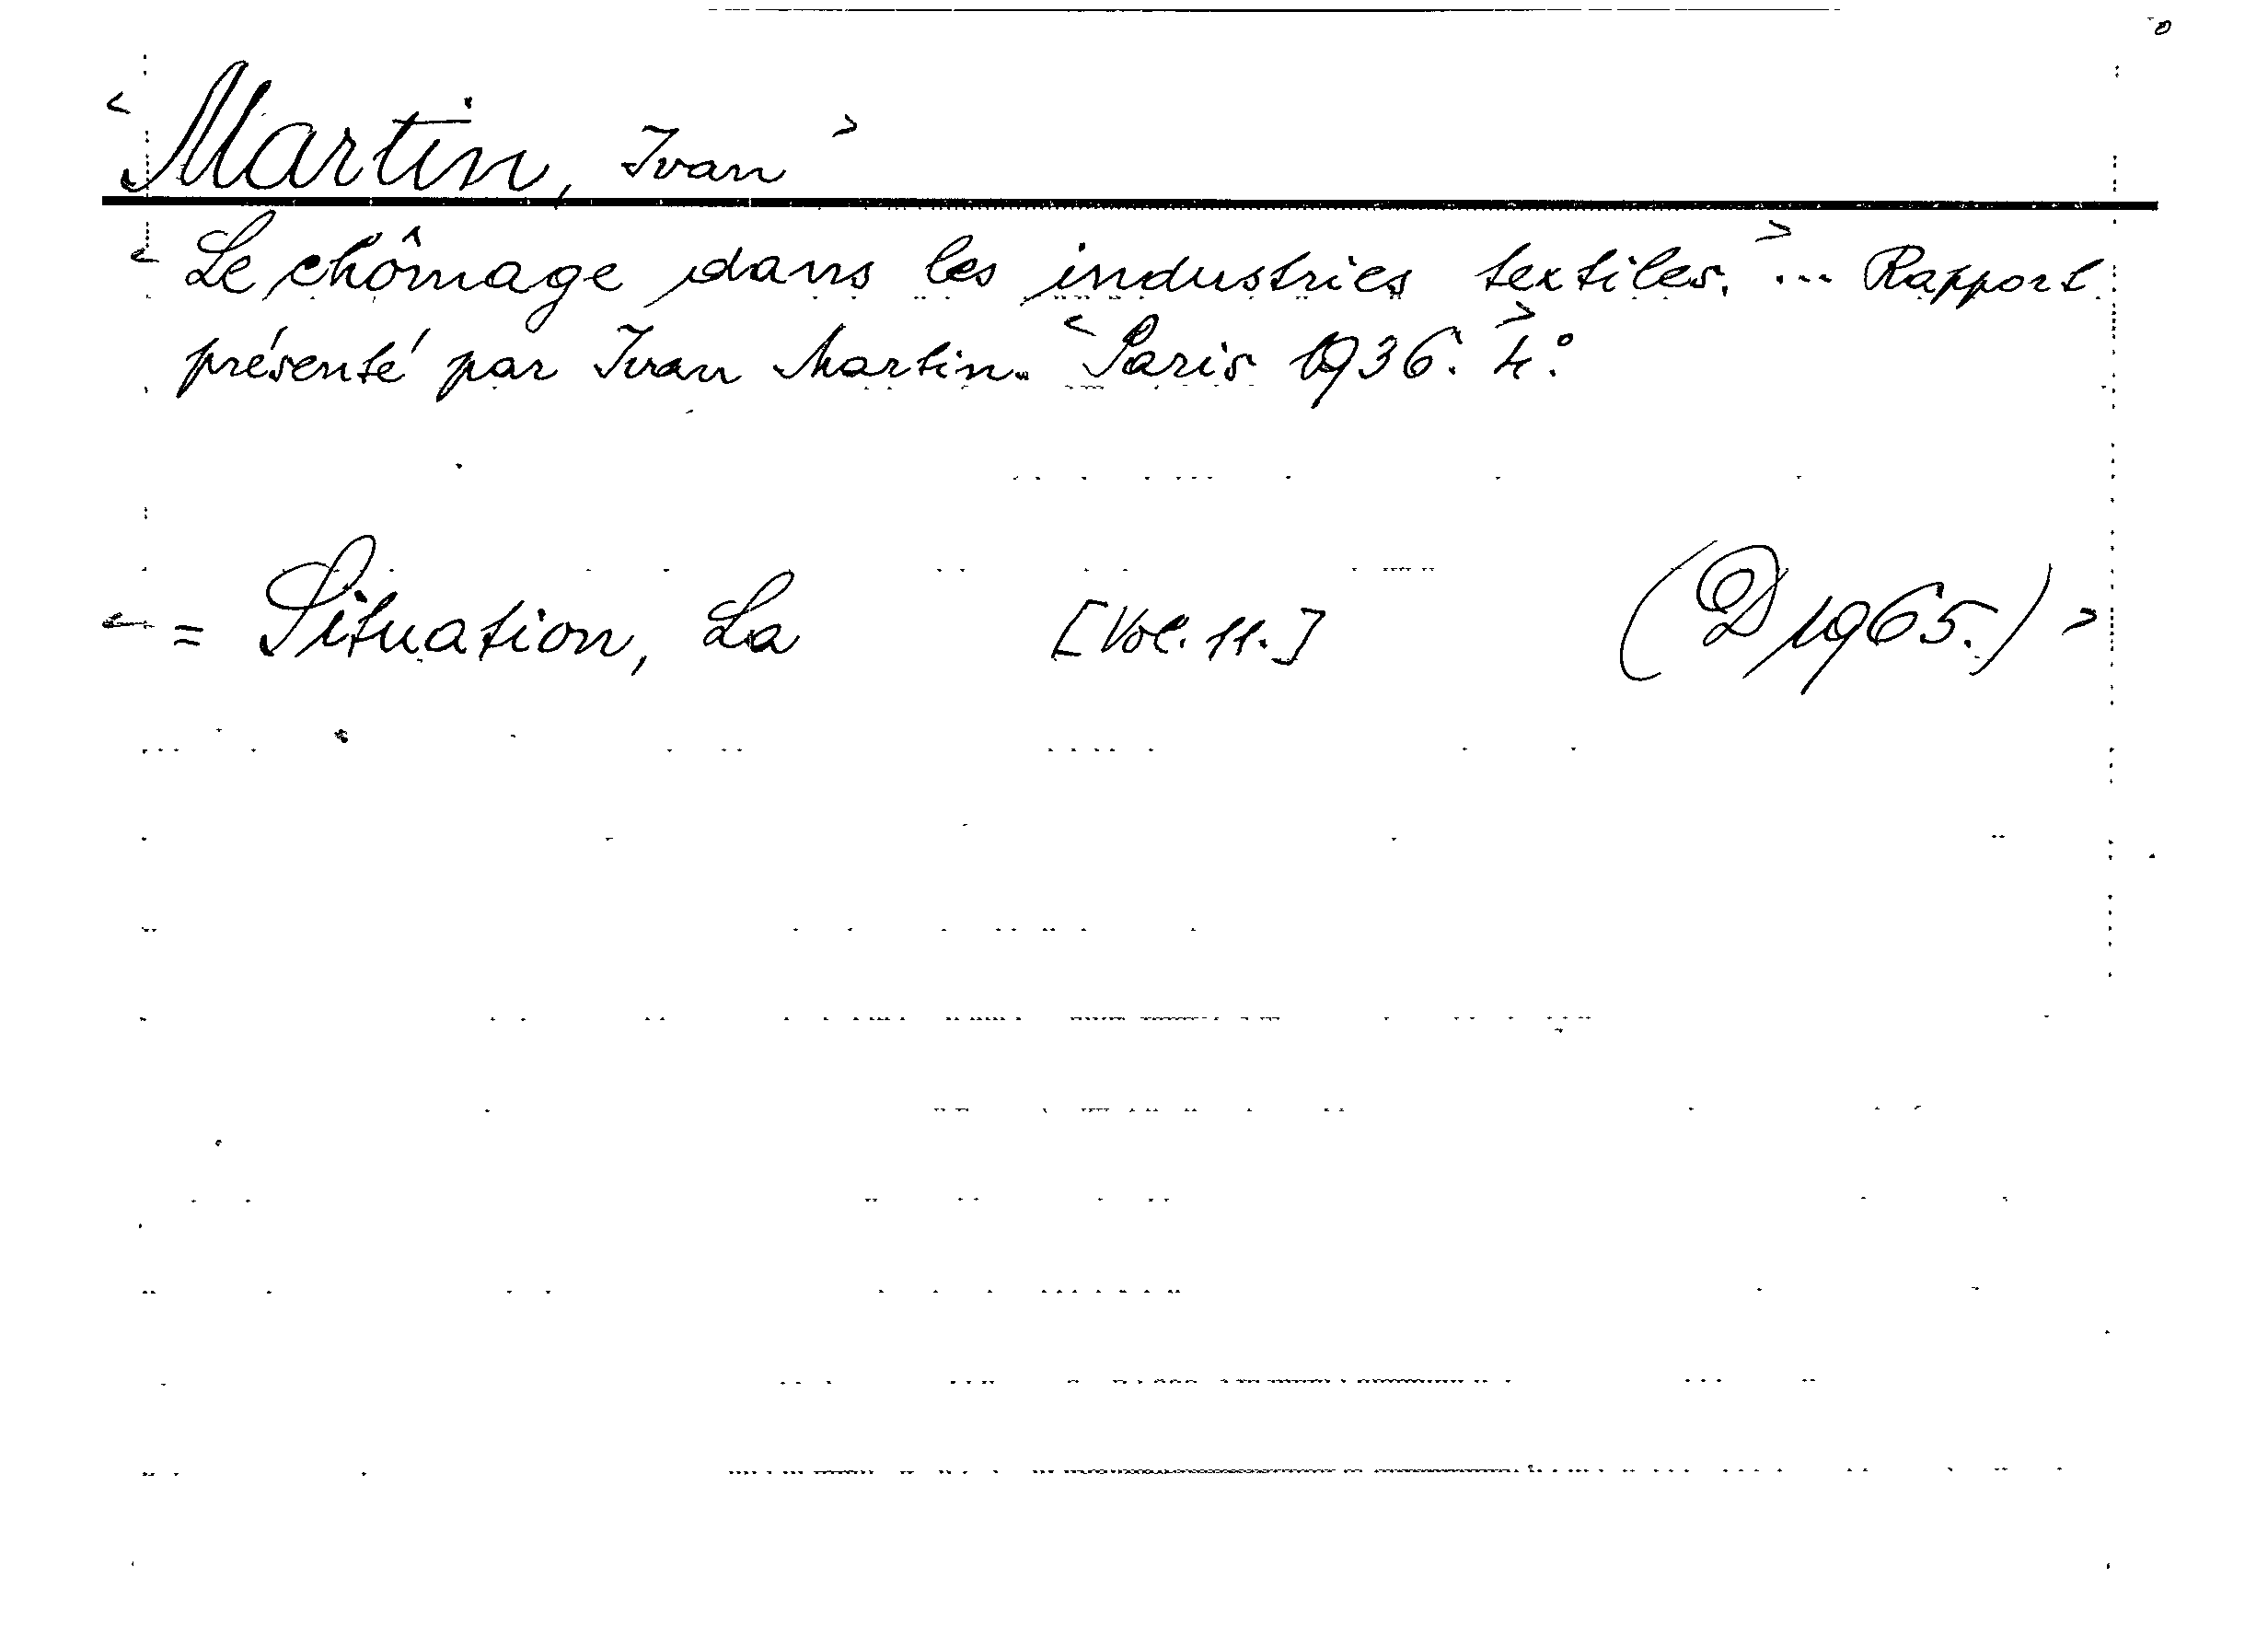 < Martin, Ivan >
< Le chômage dans les industries textiles. > ... Rapport
présenté par Ivan Martin. < Paris 1936. > 4°.
< = Situation, La [Vol. 11.] (D 1965.) >